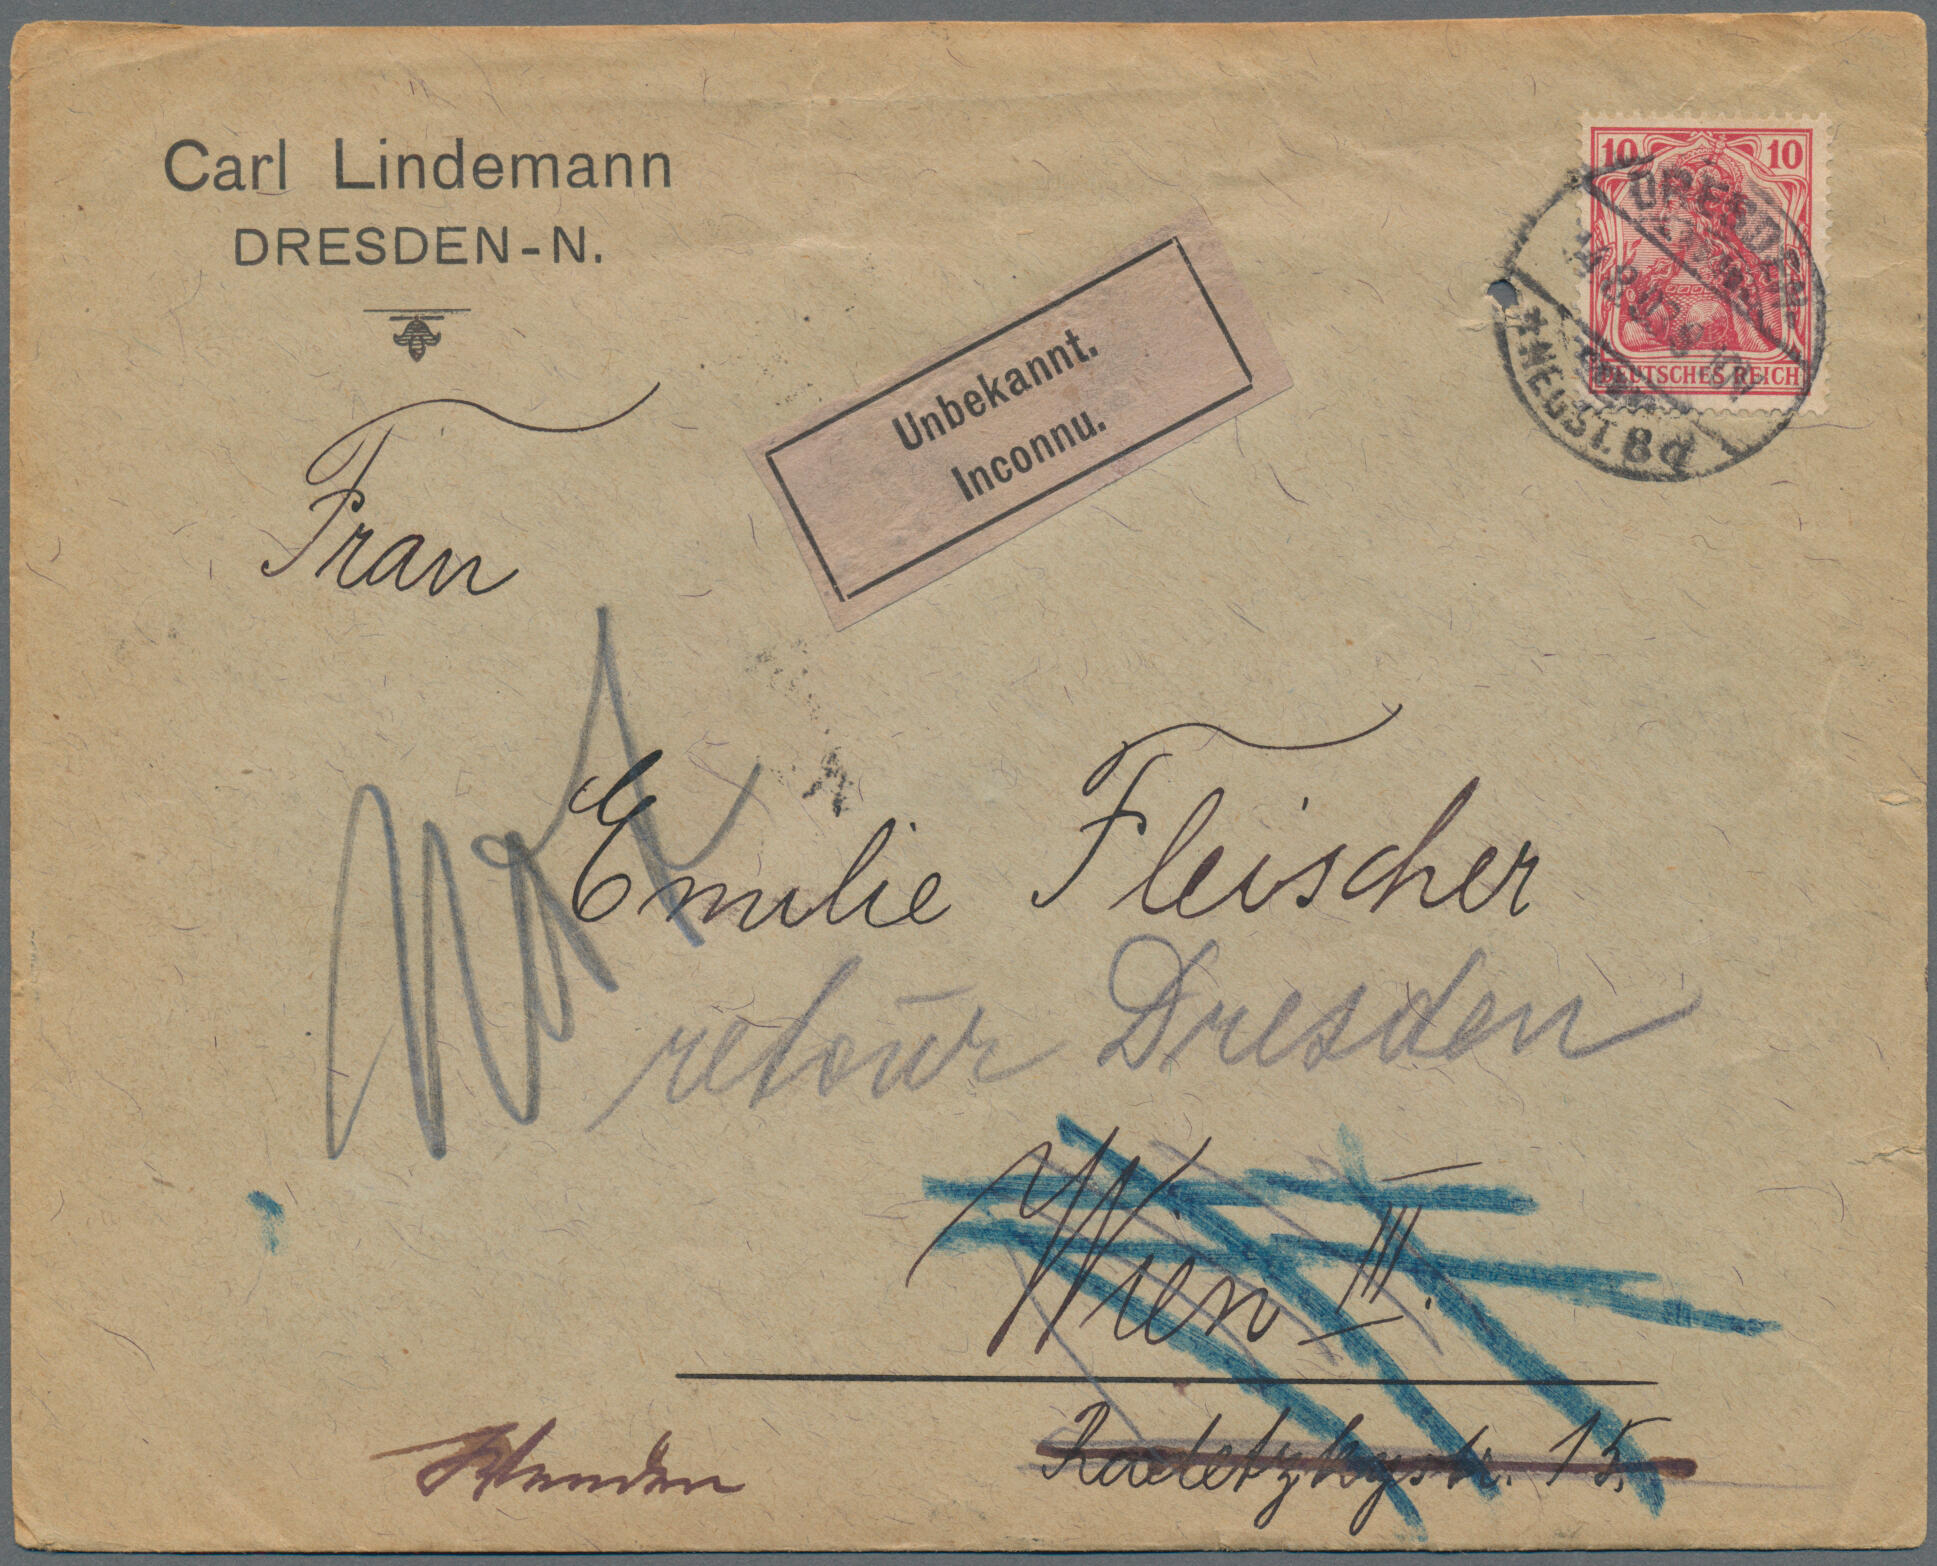 Carl Lindemann
DRESDEN-N.
10 10
DEUTSCHES REICH
DRESDEN
*NEUST. 8d
Unbekannt.
Inconnu.
Frau
Emilie Fleischer
retour Dresden
Wien III.
Radetzkystr. 15.